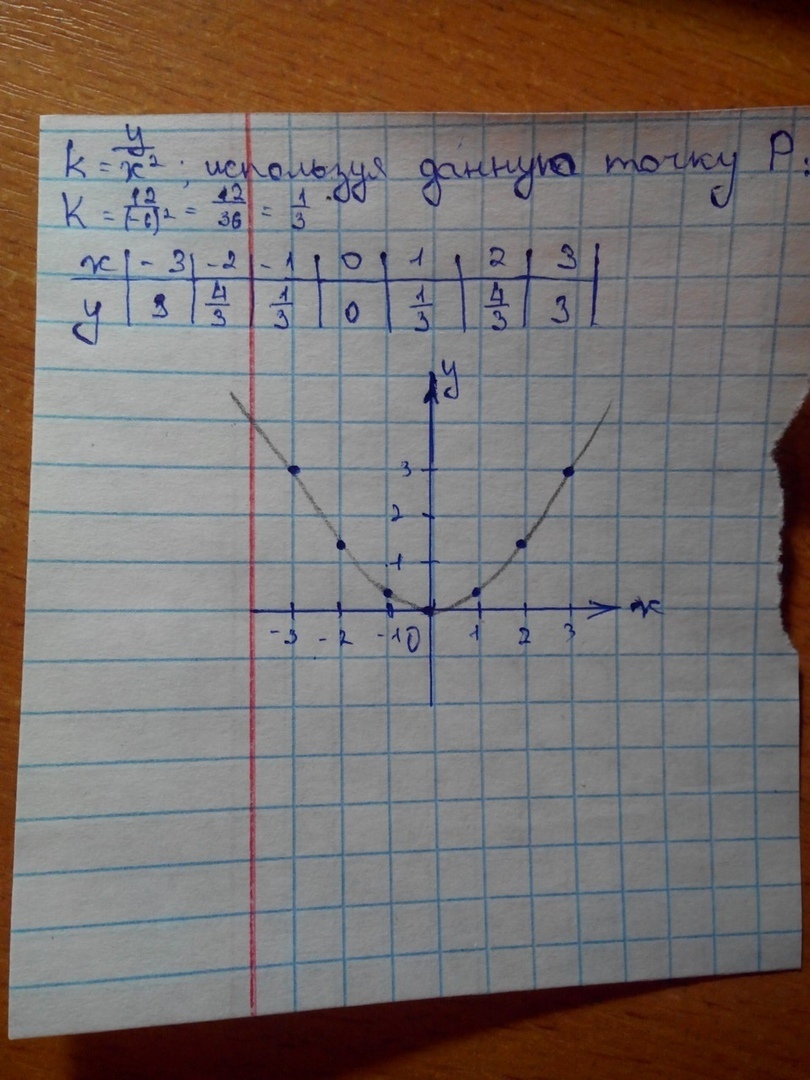 k = y/x² ; используя данную точку P:
K = 12/(-6)² = 12/36 = 1/3.
x | -3 | -2 | -1 | 0 | 1 | 2 | 3 |
y | 3 | 4/3 | 1/3 | 0 | 1/3 | 4/3 | 3 |
y
3
2
1
-3 -2 -1 0 1 2 3 x